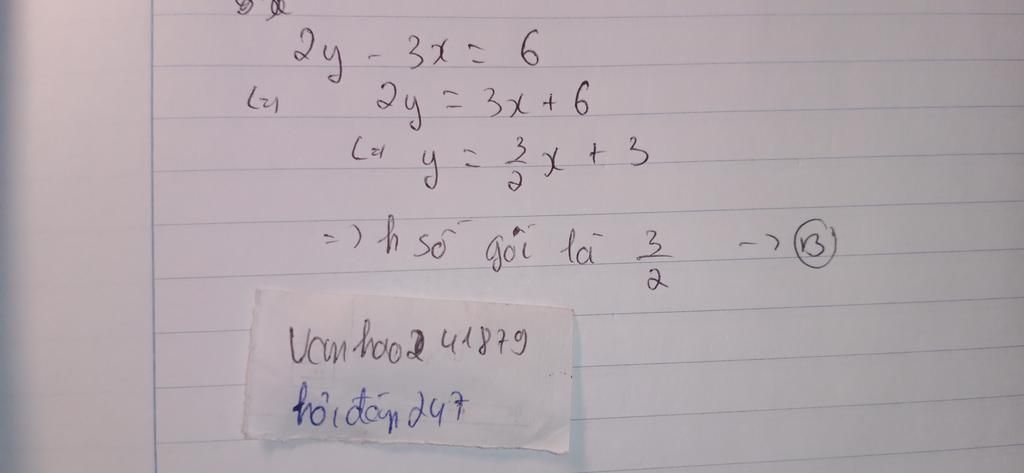 2y - 3x = 6
(=) 2y = 3x + 6
(=) y = 3/2 x + 3
=) h số gói là 3/2 -> B
vanhao241879
hỏi đáp 247